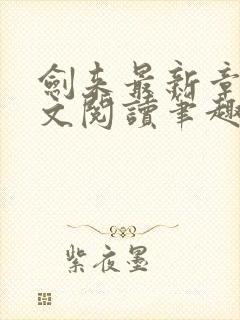 劍来最新章
文閱讀筆趣
紫夜墨